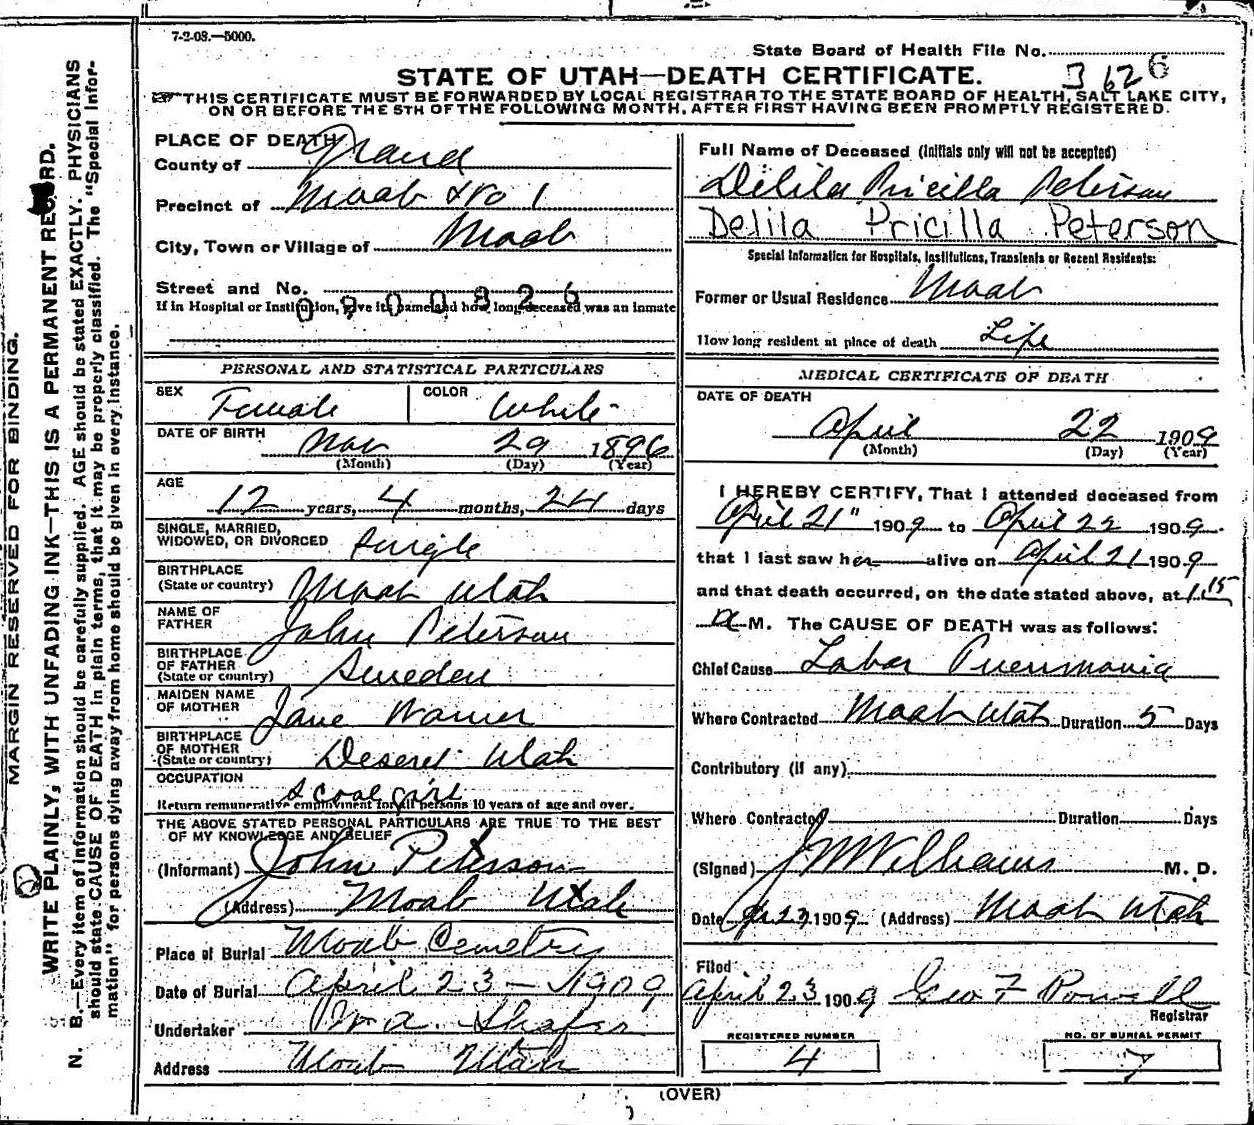 7-2-08.—5000.
State Board of Health File No.
3626
STATE OF UTAH—DEATH CERTIFICATE.
THIS CERTIFICATE MUST BE FORWARDED BY LOCAL REGISTRAR TO THE STATE BOARD OF HEALTH, SALT LAKE CITY,
ON OR BEFORE THE 5TH OF THE FOLLOWING MONTH, AFTER FIRST HAVING BEEN PROMPTLY REGISTERED.
MARGIN RESERVED FOR BINDING.
WRITE PLAINLY, WITH UNFADING INK—THIS IS A PERMANENT RECORD.
N. B.—Every item of information should be carefully supplied. AGE should be stated EXACTLY. PHYSICIANS
should state CAUSE OF DEATH in plain terms, that it may be properly classified. The "Special Infor-
mation" for persons dying away from home should be given in every instance.
PLACE OF DEATH
County of Grand
Precinct of Moab No 1
City, Town or Village of Moab
Street and No.
0900826
If in Hospital or Institution, give its name and how long deceased was an inmate
PERSONAL AND STATISTICAL PARTICULARS
SEX Female COLOR White
DATE OF BIRTH Nov 29 1896
(Month) (Day) (Year)
AGE
12 years, 4 months, 24 days
SINGLE, MARRIED,
WIDOWED, OR DIVORCED Single
BIRTHPLACE
(State or country) Moab Utah
NAME OF
FATHER John Peterson
BIRTHPLACE
OF FATHER
(State or country) Sweden
MAIDEN NAME
OF MOTHER Jane Warner
BIRTHPLACE
OF MOTHER
(State or country) Deseret Utah
OCCUPATION
Scool girl
Return remunerative employment for all persons 10 years of age and over.
THE ABOVE STATED PERSONAL PARTICULARS ARE TRUE TO THE BEST
OF MY KNOWLEDGE AND BELIEF
(Informant) John Peterson
(Address) Moab Utah
Place of Burial Moab Cemetry
Date of Burial April 23 - 1909
Undertaker Shafer
Address Moab Utah
Full Name of Deceased (Initials only will not be accepted)
Delila Pricilla Peterson
Delila Pricilla Peterson
Special Information for Hospitals, Institutions, Transients or Recent Residents:
Former or Usual Residence Moab
How long resident at place of death Life
MEDICAL CERTIFICATE OF DEATH
DATE OF DEATH
April 22 1909
(Month) (Day) (Year)
I HEREBY CERTIFY, That I attended deceased from
April 21" 1909 to April 22 1909
that I last saw her alive on April 21 1909
and that death occurred, on the date stated above, at 1.15
a M. The CAUSE OF DEATH was as follows:
Chief Cause Lobar Pneumonia
Where Contracted Moab Utah Duration 5 Days
Contributory (if any)
Where Contracted Duration Days
(Signed) J M Williams M. D.
Date 1909 (Address) Moab Utah
Filed
April 23 1909 Geo F Powell
Registrar
REGISTERED NUMBER
4
NO. OF BURIAL PERMIT
7
(OVER)